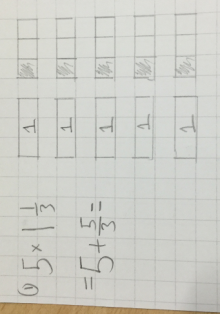 (1) 5 × 1 1/3
= 5 + 5/3 =
1
1
1
1
1